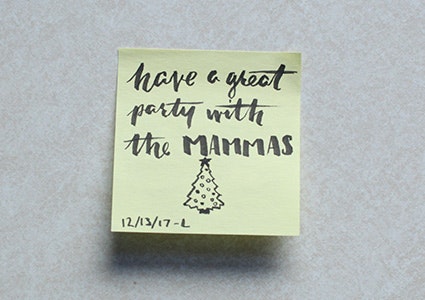 have a great
party with
the MAMMAS
12/13/17-L